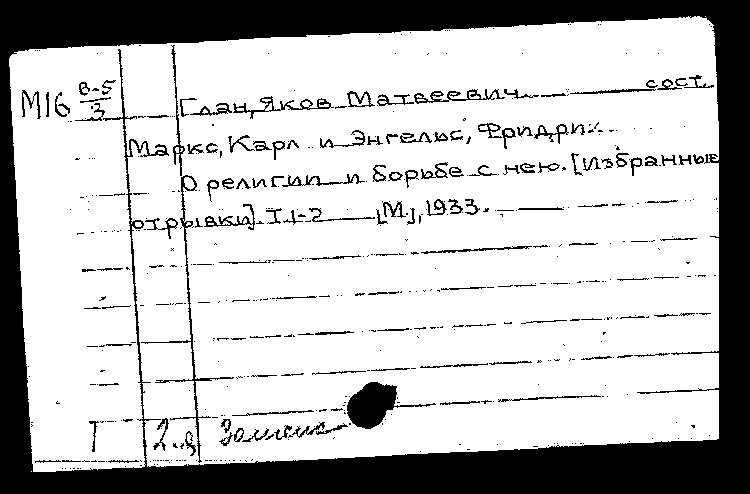 М16 В-5/3
Глан, Яков Матвеевич сост.
Маркс, Карл и Энгельс, Фридрих
О религии и борьбе с нею. [Избранные
отрывки]. Т.1-2 [М.], 1933.